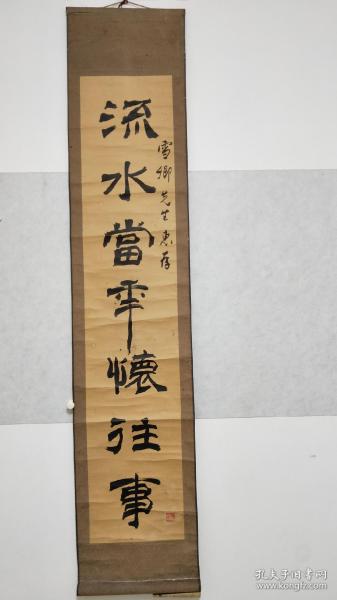 流水當年懷往事
雪卿先生惠存
孔夫子旧书网